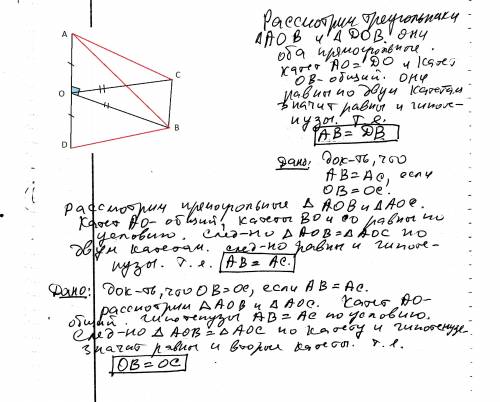 Рассмотрим треугольники
△AOB и △DOB. они
оба прямоугольные.
катет AO=DO и катет
OB-общий. они
равны по двум катетам
значит равны и гипоте-
нузы. т.е.
AB=DB
A
C
O
B
D
Дано: док-ть, что
AB=AC, если
OB=OC.
Рассмотрим прямоугольные △AOB и △AOC.
Катет AO- общий, катеты BO и CO равны по
условию. след-но △AOB=△AOC по
двум катетам. след-но равны и гипоте-
нузы. т.е. AB=AC.
Дано: док-ть, что OB=OC, если AB=AC.
рассмотрим △AOB и △AOC. Катет AO-
общий. гипотенузы AB=AC по условию.
след-но △AOB=△AOC по катету и гипотенузе.
значит равны и вторые катеты. т.е.
OB=OC